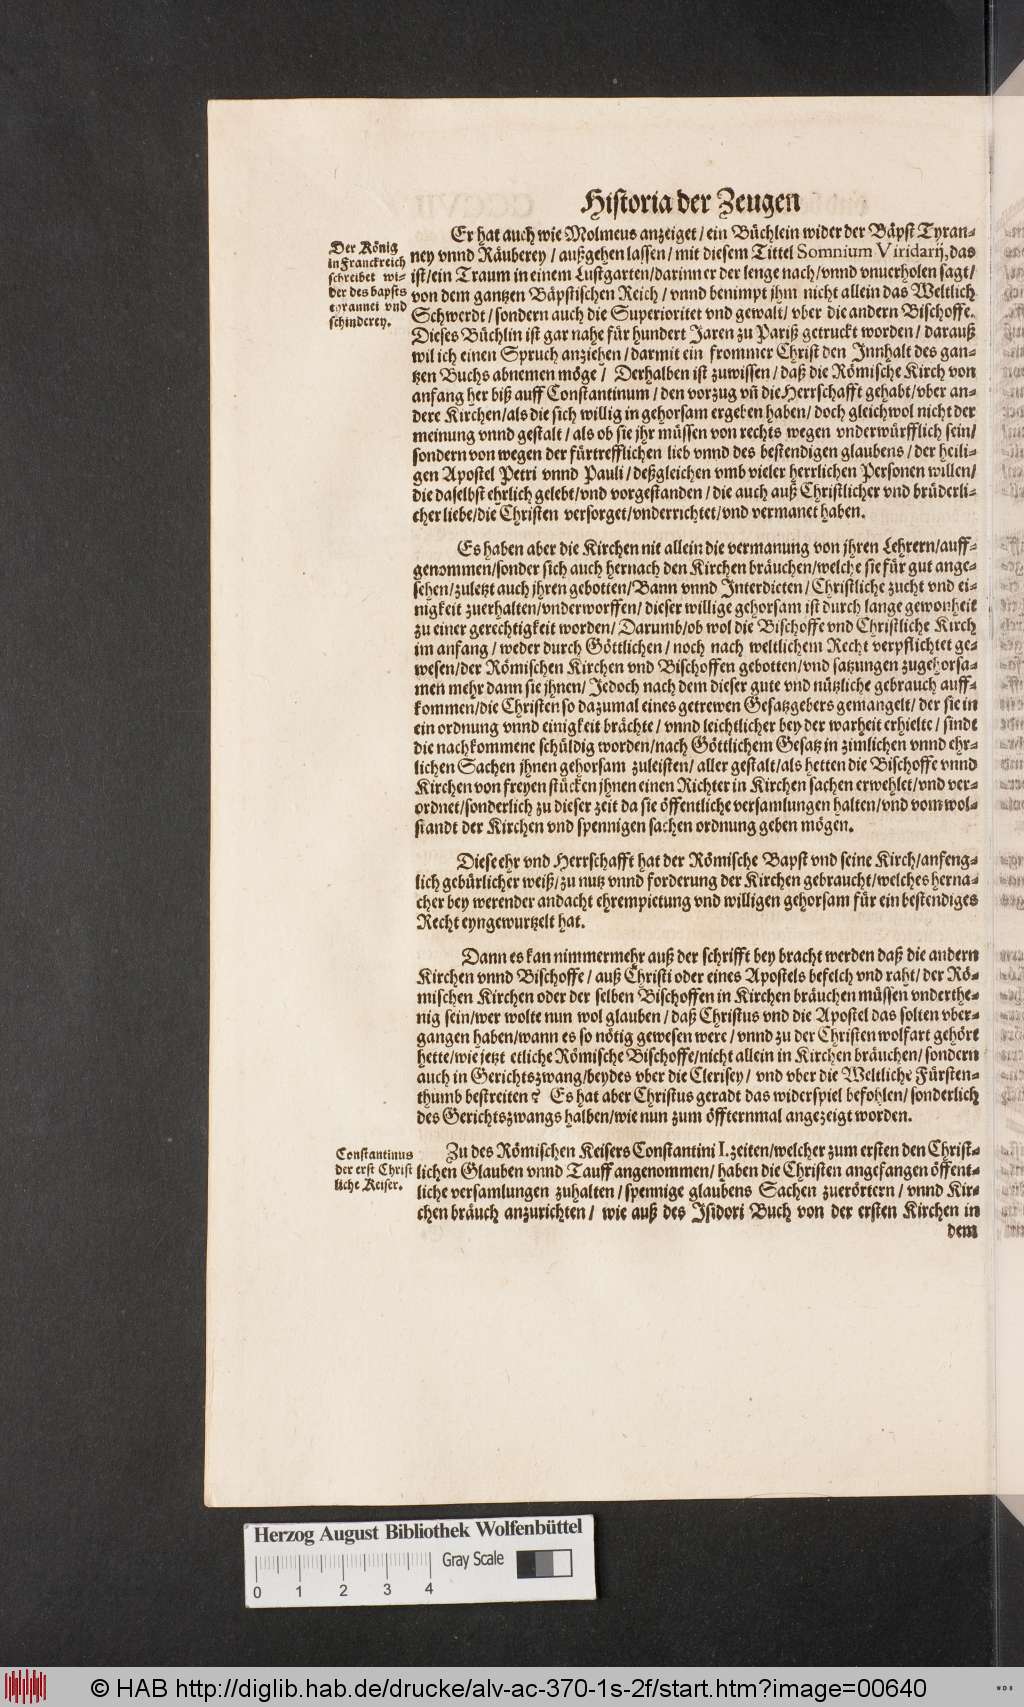 Historia der Zeugen
Der König
in Franckreich
schreibet wi-
der des bapsts
tyrannei vnd
schinderey.
Er hat auch wie Molmeus anzeiget/ein Büchlein wider der Bäpst Tyran-
ney vnnd Räuberey/außgehen lassen/mit diesem Tittel Somnium Viridarij, das
ist/ein Traum in einem Lustgarten/darinn er der lenge nach/vnnd vnuerholen sagt/
von dem gantzen Bäpstischen Reich/vnnd benimpt jhm nicht allein das Weltlich
Schwerdt/sondern auch die Superioritet vnd gewalt/vber die andern Bischoffe.
Dieses Büchlin ist gar nahe für hundert Jaren zu Pariß getruckt worden/darauß
wil ich einen Spruch anziehen/darmit ein frommer Christ den Innhalt des gan-
tzen Buchs abnemen möge/ Derhalben ist zuwissen/daß die Römische Kirch von
anfang her biß auff Constantinum/den vorzug vñ die Herrschafft gehabt/vber an-
dere Kirchen/als die sich willig in gehorsam ergeben haben/doch gleichwol nicht der
meinung vnnd gestalt/als ob sie jhr müssen von rechts wegen vnderwürfflich sein/
sondern von wegen der fürtrefflichen lieb vnnd des bestendigen glaubens/der heili-
gen Apostel Petri vnnd Pauli/deßgleichen vmb vieler herrlichen Personen willen/
die daselbst ehrlich gelebt/vnd vorgestanden/die auch auß Christlicher vnd brüderli-
cher liebe/die Christen versorget/vnderrichtet/vnd vermanet haben.
Es haben aber die Kirchen nit allein die vermanung von jhren Lehrern/auff-
genommen/sonder sich auch hernach den Kirchen bräuchen/welche sie für gut ange-
sehen/zuletzt auch jhren gebotten/Bann vnnd Interdicten/Christliche zucht vnd ei-
nigkeit zuerhalten/vnderworffen/dieser willige gehorsam ist durch lange gewonheit
zu einer gerechtigkeit worden/Darumb/ob wol die Bischoffe vnd Christliche Kirch
im anfang/weder durch Göttlichen/noch nach weltlichem Recht verpflichtet ge-
wesen/der Römischen Kirchen vnd Bischoffen gebotten/vnd satzungen zugehorsa-
men mehr dann sie jhnen/Jedoch nach dem dieser gute vnd nützliche gebrauch auff-
kommen/die Christen so dazumal eines getrewen Gesatzgebers gemangelt/der sie in
ein ordnung vnnd einigkeit brächte/vnnd leichtlicher bey der warheit erhielte/sindt
die nachkommene schüldig worden/nach Göttlichem Gesatz in zimlichen vnnd ehr-
lichen Sachen jhnen gehorsam zuleisten/aller gestalt/als hetten die Bischoffe vnnd
Kirchen von freyen stücken jhnen einen Richter in Kirchen sachen erwehlet/vnd ver-
ordnet/sonderlich zu dieser zeit da sie öffentliche versamlungen halten/vnd vom wol-
standt der Kirchen vnd spennigen sachen ordnung geben mögen.
Diese ehr vnd Herrschafft hat der Römische Bapst vnd seine Kirch/anfeng-
lich gebürlicher weiß/zu nutz vnnd forderung der Kirchen gebraucht/welches herna-
cher bey werender andacht ehrempietung vnd willigen gehorsam für ein bestendiges
Recht eyngewurtzelt hat.
Dann es kan nimmermehr auß der schrifft bey bracht werden daß die andern
Kirchen vnnd Bischoffe/auß Christi oder eines Apostels befelch vnd raht/der Rö-
mischen Kirchen oder der selben Bischoffen in Kirchen bräuchen müssen vnderthe-
nig sein/wer wolte nun wol glauben/daß Christus vnd die Apostel das solten vber-
gangen haben/wann es so nötig gewesen were/vnnd zu der Christen wolfart gehört
hette/wie jetzt etliche Römische Bischoffe/nicht allein in Kirchen bräuchen/sondern
auch in Gerichtszwang/beydes vber die Clerisey/vnd vber die Weltliche Fürsten-
thumb bestreiten? Es hat aber Christus geradt das widerspiel befohlen/sonderlich
des Gerichtszwangs halben/wie nun zum öffternmal angezeigt worden.
Constantinus
der erst Christ
liche Keiser.
Zu des Römischen Keisers Constantini I. zeiten/welcher zum ersten den Christ-
lichen Glauben vnnd Tauff angenommen/haben die Christen angefangen öffent-
liche versamlungen zuhalten/spennige glaubens Sachen zuerörtern/vnnd Kir-
chen bräuch anzurichten/wie auß des Isidori Buch von der ersten Kirchen in
dem
Herzog August Bibliothek Wolfenbüttel
Gray Scale
0 1 2 3 4
© HAB http://diglib.hab.de/drucke/alv-ac-370-1s-2f/start.htm?image=00640